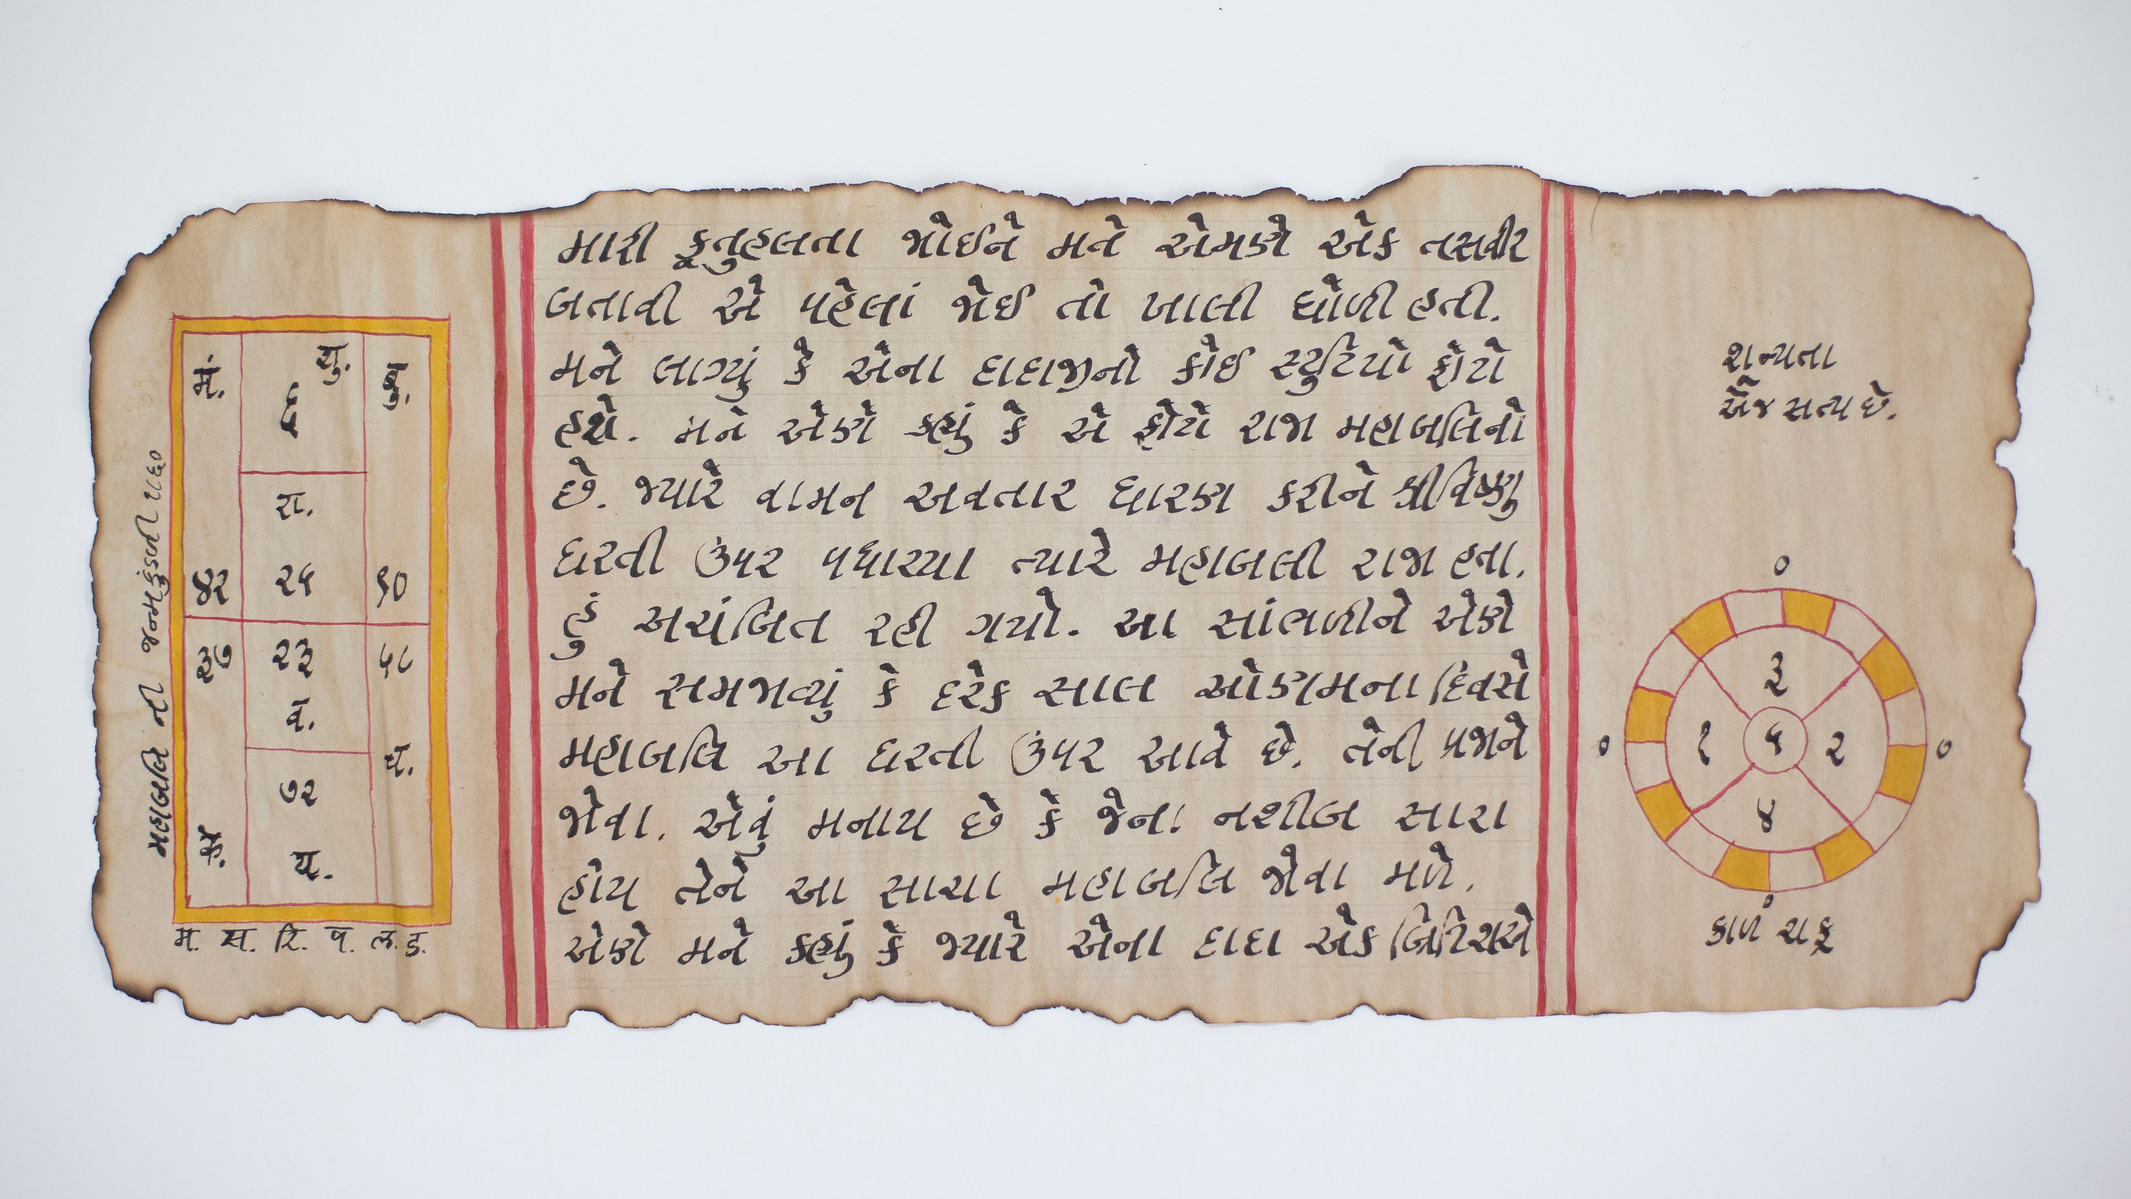 મહાબલિ ની જન્મકુંડળી
મં.
શુ.
રા.
૪૨
૨૬
૬૦
૩૭
૨૩
૫૮
વ.
૭૨
મ. સ. રિ. પ. લ. ડ.
મારી કૂતુહલતા જોઈને મને એમણે એક તસવીર
બતાવી એ પહેલાં જોઈ તો ખાલી ધોળી હતી.
મને લાગ્યું કે એના દાદાજીનો કોઈ સ્ટુડિયો ફોટો
હશે. મને એણે કહ્યું કે એ ફોટો રાજા મહાબલિનો
છે. જ્યારે વામન અવતાર ધારણ કરીને શ્રીવિષ્ણુ
ધરતી ઉપર પધાર્યા ત્યારે મહાબલી રાજા હતા.
હું અચંબિત રહી ગયો. આ સાંભળીને એણે
મને સમજાવ્યું કે દરેક સાલ ઓણમના દિવસે
મહાબલિ આ ધરતી ઉપર આવે છે. તેની પ્રજાને
જોવા. એવું મનાય છે કે જેના નશીબ સારા
હોય તેને આ સાચા મહાબલિ જોવા મળે.
એણે મને કહ્યું કે જ્યારે એના દાદા એક બ્રિટિશએ
શન્યતા
એજ સત્ય છે.
૦
૩
૦ ૧ ૬ ૨ ૦
૪
૦
કાળ ચક્ર